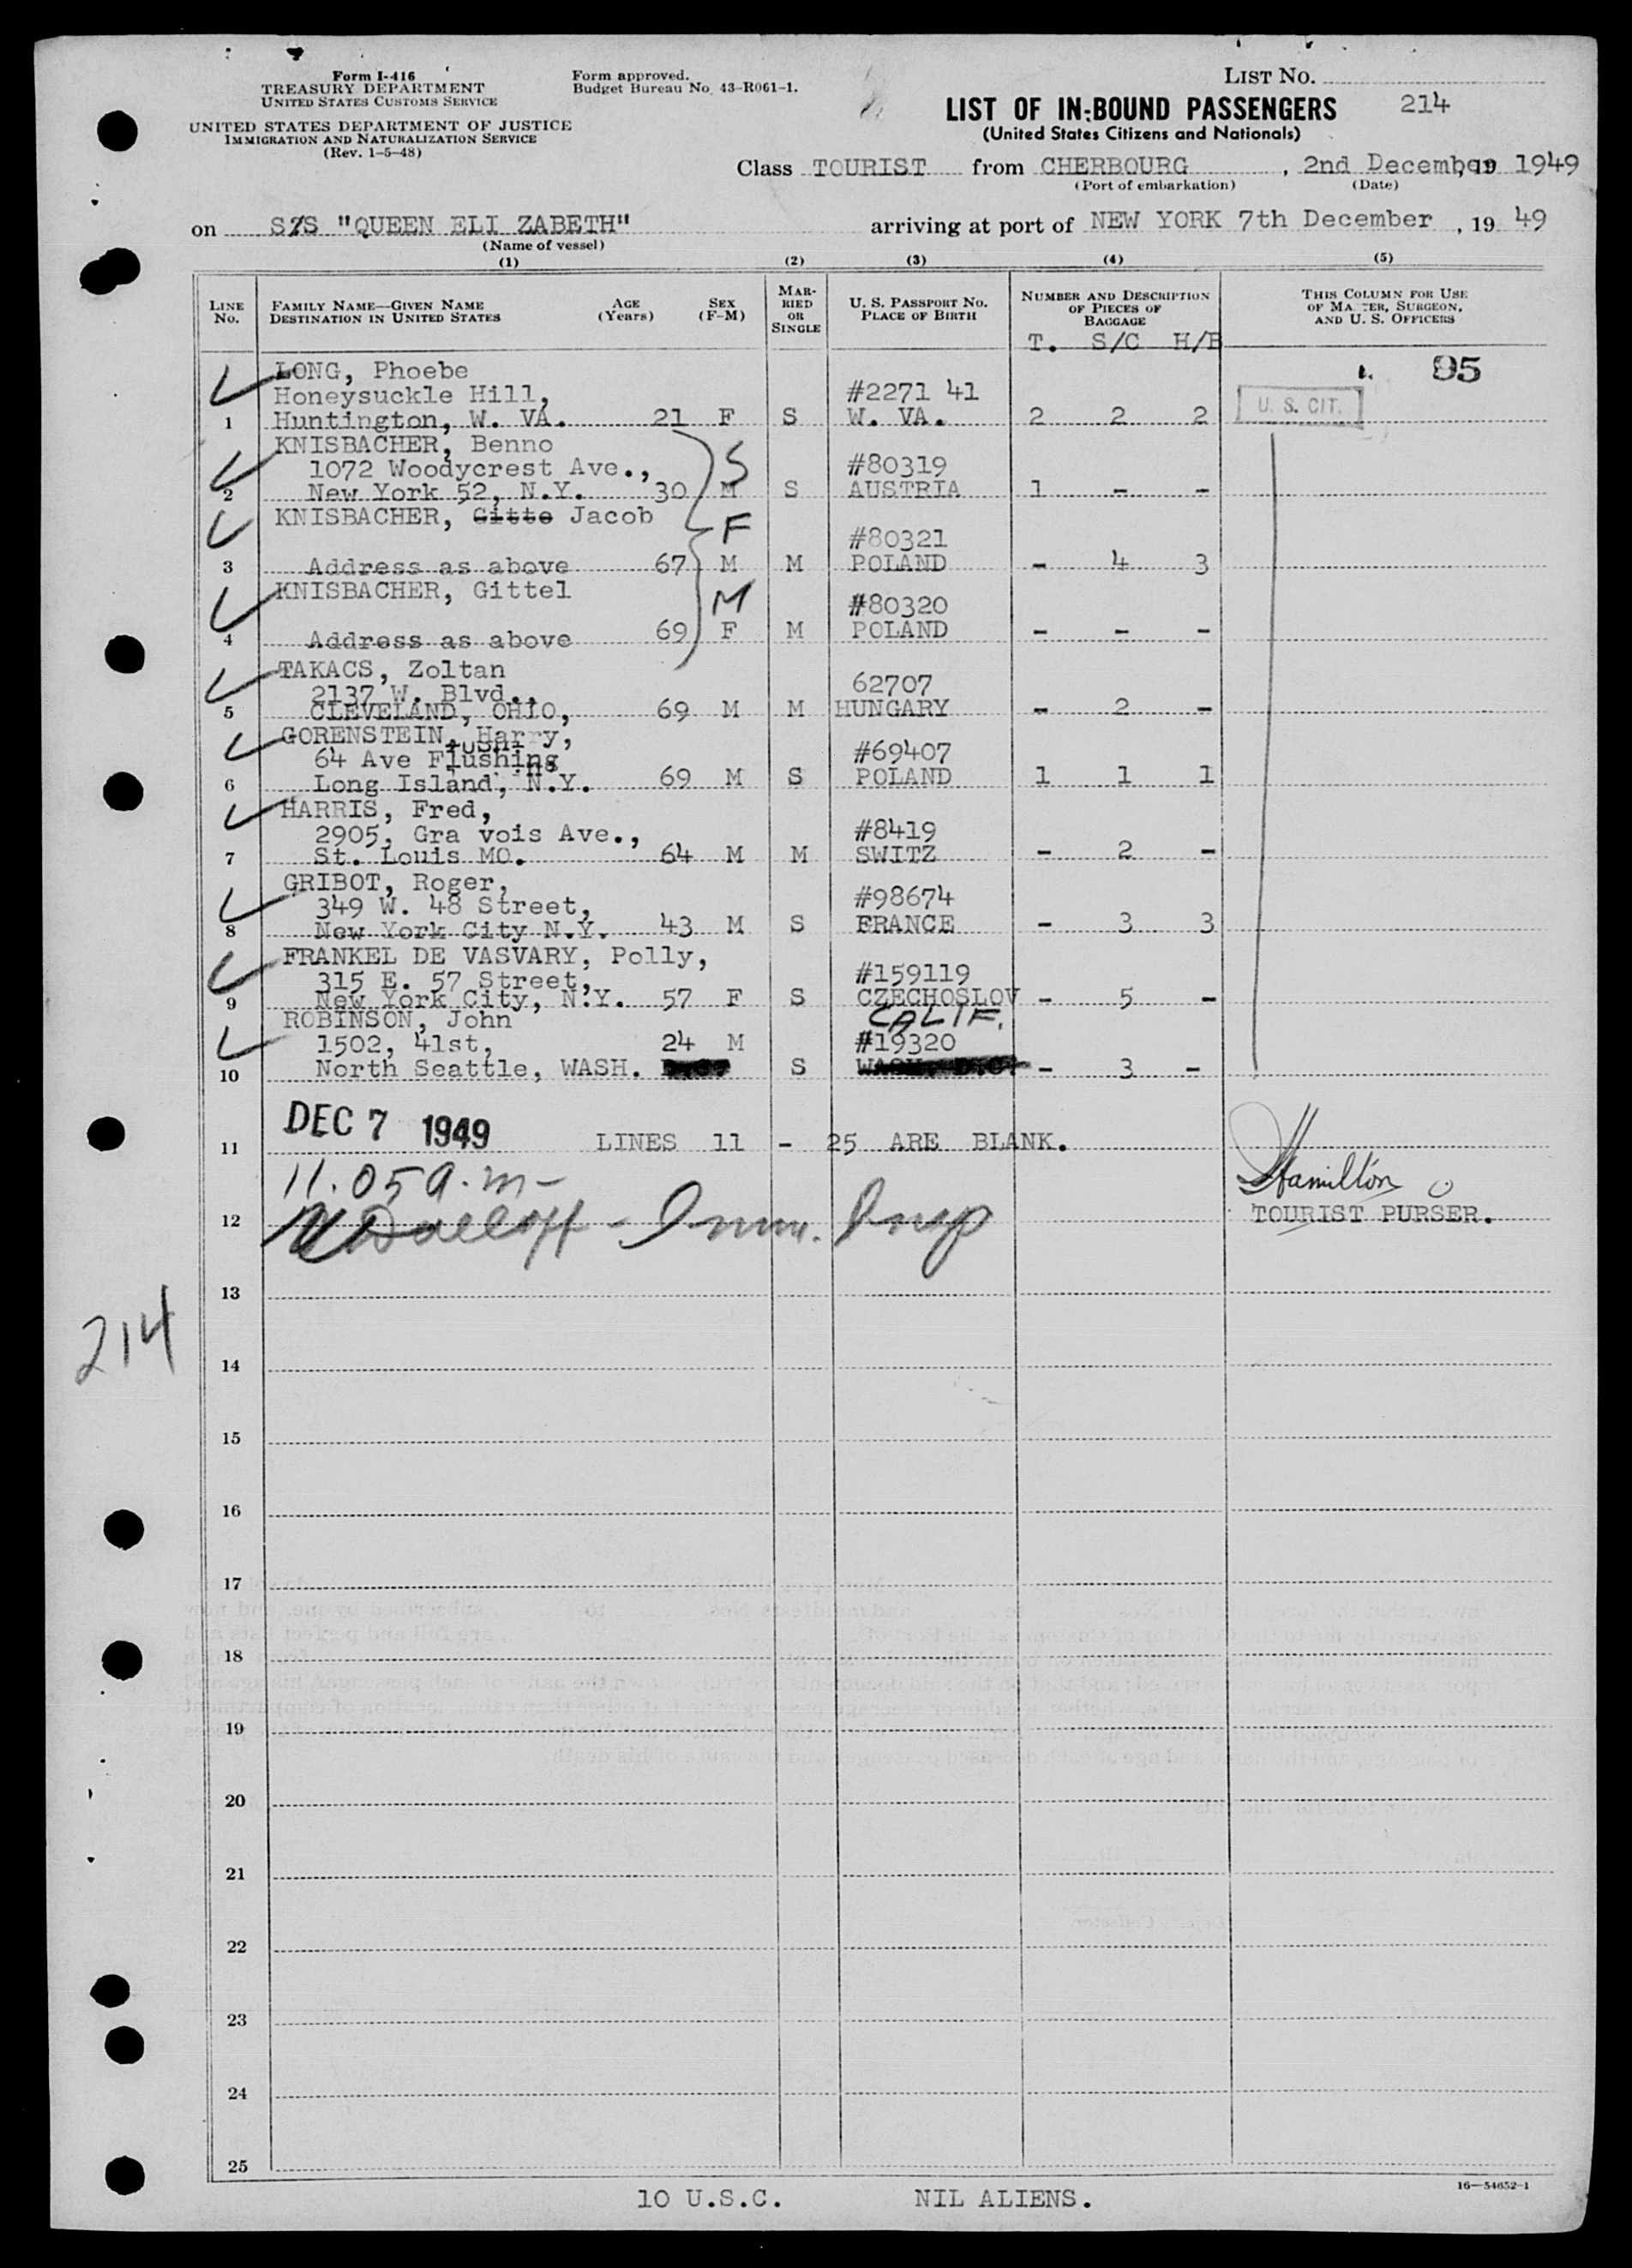 Form I-416
TREASURY DEPARTMENT
UNITED STATES CUSTOMS SERVICE
UNITED STATES DEPARTMENT OF JUSTICE
IMMIGRATION AND NATURALIZATION SERVICE
(Rev. 1-5-48)
Form approved.
Budget Bureau No. 43-R061-1.
LIST NO.
LIST OF IN-BOUND PASSENGERS 214
(United States Citizens and Nationals)
Class TOURIST from CHERBOURG, 2nd December, 19 1949
(Port of embarkation) (Date)
on S/S "QUEEN ELI ZABETH" arriving at port of NEW YORK 7th December, 19 49
(Name of vessel)
(1) (2) (3) (4) (5)
LINE No. FAMILY NAME—GIVEN NAME DESTINATION IN UNITED STATES AGE (Years) SEX (F-M) MARRIED OR SINGLE U. S. PASSPORT NO. PLACE OF BIRTH NUMBER AND DESCRIPTION OF PIECES OF BAGGAGE THIS COLUMN FOR USE OF MASTER, SURGEON, AND U. S. OFFICERS
T. S/C H/B
LONG, Phoebe 95
Honeysuckle Hill, #2271 41 U. S. CIT.
1 Huntington, W. VA. 21 F S W. VA. 2 2 2
KNISBACHER, Benno S
1072 Woodycrest Ave., #80319
2 New York 52, N.Y. 30 M S AUSTRIA 1 - -
KNISBACHER, Gitte Jacob F
#80321
3 Address as above 67 M M POLAND - 4 3
KNISBACHER, Gittel M
#80320
4 Address as above 69 F M POLAND - - -
TAKACS, Zoltan
2137 W. Blvd., 62707
5 CLEVELAND, OHIO, 69 M M HUNGARY - 2 -
GORENSTEIN, Harry,
64 Ave Flushing #69407
6 Long Island, N.Y. 69 M S POLAND 1 1 1
HARRIS, Fred,
2905, Gra vois Ave., #8419
7 St. Louis MO. 64 M M SWITZ - 2 -
GRIBOT, Roger,
349 W. 48 Street, #98674
8 New York City N.Y. 43 M S FRANCE - 3 3
FRANKEL DE VASVARY, Polly,
315 E. 57 Street, #159119
9 New York City, N.Y. 57 F S CZECHOSLOV - 5 -
ROBINSON, John CALIF.
1502, 41st, 24 M #19320
10 North Seattle, WASH. S - 3 -
DEC 7 1949
11 LINES 11 - 25 ARE BLANK.
11.05 a.m-
Hamilton
12 Imm. Insp TOURIST PURSER.
13
214
14
15
16
17
18
19
20
21
22
23
24
25
16—54652-1
10 U.S.C. NIL ALIENS.